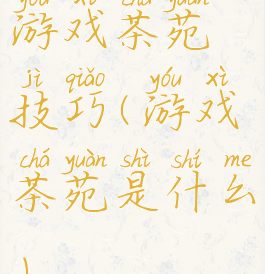 yóu xì chá yuàn
游戏茶苑
jì qiǎo yóu xì
技巧(游戏
chá yuàn shì shí me
茶苑是什么
)